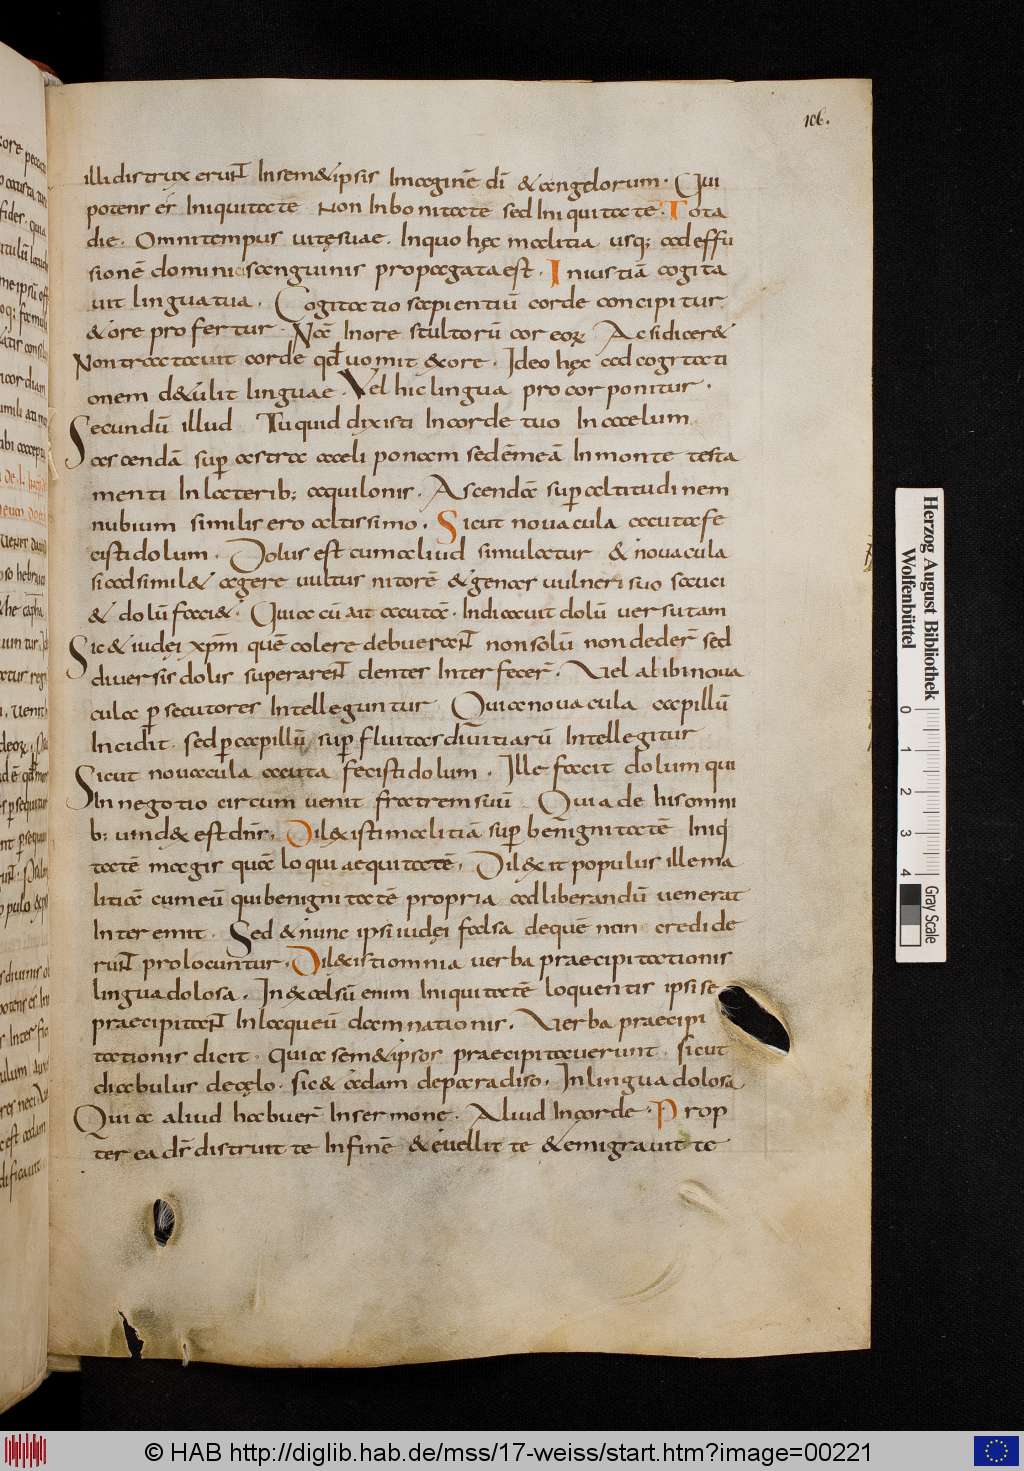 106.
illi distruxerunt In semet ipsis Imaginē dī & angelorum. Qui
potens es Iniquitate Non In bonitate sed Iniquitate. Tota
die. Omni tempus vitę suae. In quo hęc malitia usq; ad effu
sionē dominici sanguinis propagata est. Iniustiā cogita
vit lingua tua. Cogitatio sapientiū corde concipitur
& ore profertur. Nā In ore stultorū cor eoꝝ Ac si dicer&
Non tractavit corde qđ vomit & ore. Ideo hęc ad cogitati
onem d&ulit linguae. Vel hic lingua pro cor ponitur.
Secundū illud Tu quid dixisti In corde tuo In caelum
ascendā suꝑ astra caeli ponam sedē meā In monte testa
menti In laterib; aquilonis. Ascendā suꝑ altitudinem
nubium similis ero altissimo. Sicut novacula acuta fe
cisti dolum. Dolus est cum aliud simulatur & novacula
si adsimil& agere vultur nitorē & genas vulneri suo sauci
& dolū faci&. Quia cū ait acutā. Indicavit dolū versutam
Sic & iudęi xp̄m quē colere debuerant non solū non deder̄ sed
diversis dolis superarent dentes Interfecer̄. Vel alibi nova
cula ꝑsecutores Intelleguntur Quia novacula capillū
Incidit. sed ꝑ capillū suꝑfluitas divitiarū Intellegitur
Sicut novacula acuta fecisti dolum. Ille facit dolum qui
In negotio circumvenit fratrem suū Quia de his omni
b; vind& est dn̄s. Dil&isti malitiā suꝑ benignitatē Iniq
tatē magis quā loqui aequitatē. Dil&it populus ille ma
litiā cum eū qui benignitatē propria ad liberandū venerat
Interemit. Sed & nunc ipsi iudęi falsa de quē non credide
runt prolocuntur. Dil&isti omnia verba praecipitationis
lingua dolosa. In & alsū enim Iniquitatē loquentis ipsi se
praecipitant In laqueū damnationis. Verba praecipi
tationis dicit. quia sem&ipsos praecipitaverunt. sicut
diabulus de cęlo. sic & adam de paradiso. In lingua dolosa
Quia aliud habuer̄ In sermone. Aliud In corde. Prop
ter ea dr̄ distruit te In finē & evellit te & emigravit te
Herzog August Bibliothek
Wolfenbüttel
0 1 2 3 4
Gray Scale
© HAB http://diglib.hab.de/mss/17-weiss/start.htm?image=00221